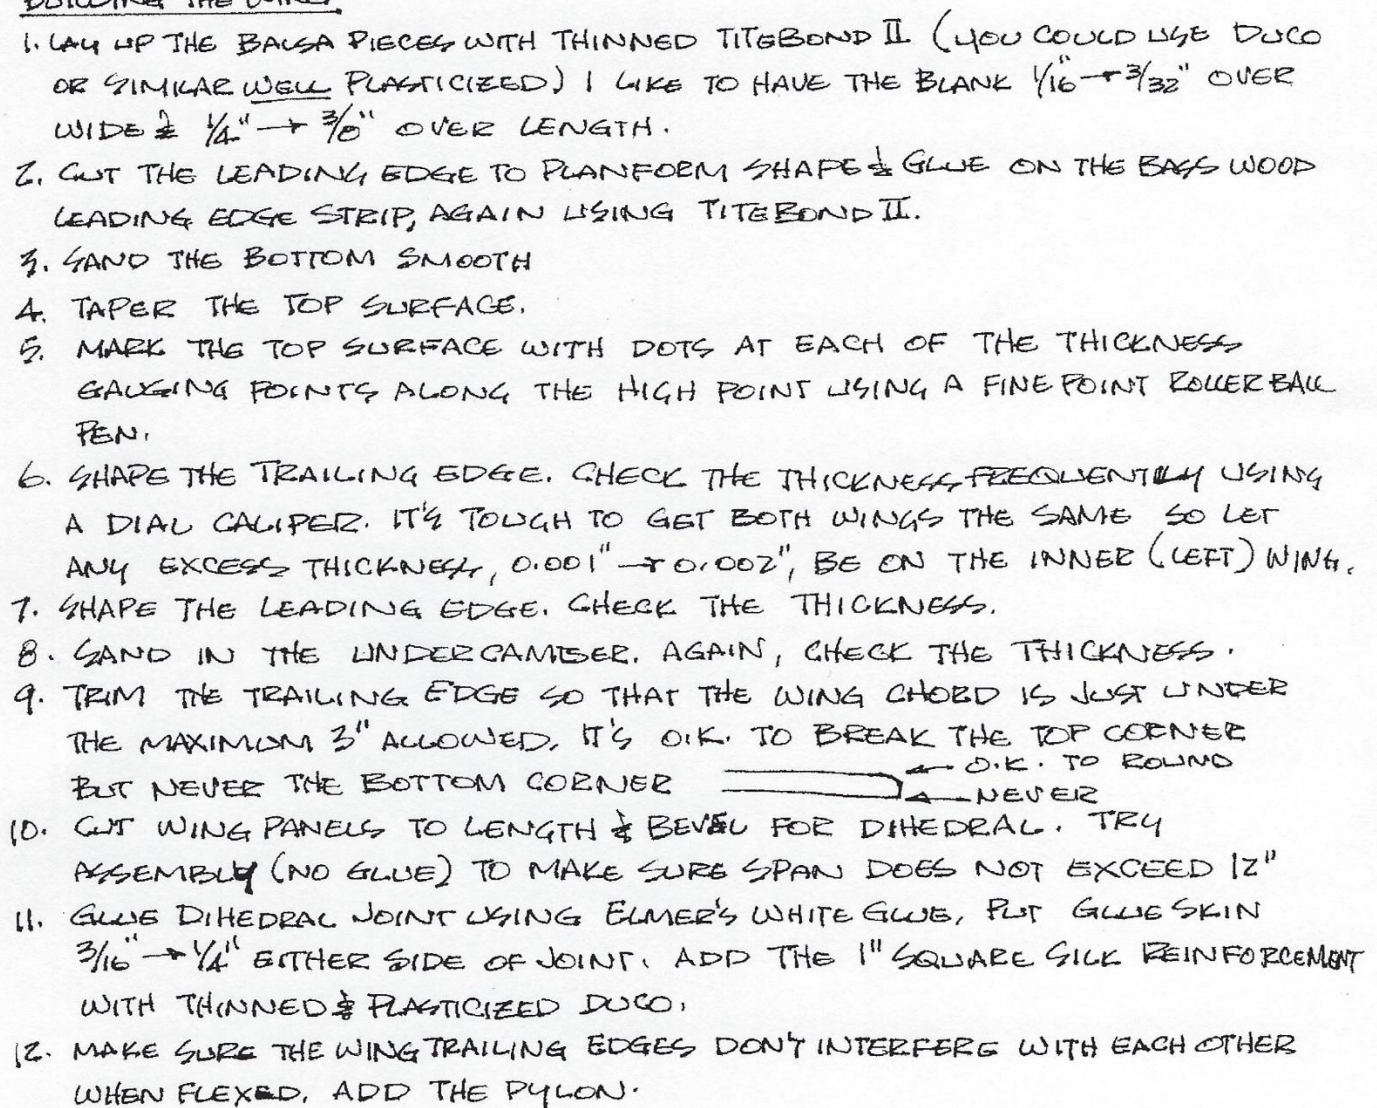 BUILDING THE WING.
1. LAY UP THE BALSA PIECES WITH THINNED TITEBOND II (YOU COULD USE DUCO
OR SIMILAR WELL PLASTICIZED) I LIKE TO HAVE THE BLANK 1/16" → 3/32" OVER
WIDE & 1/4" → 3/8" OVER LENGTH.
2. CUT THE LEADING EDGE TO PLANFORM SHAPE & GLUE ON THE BASS WOOD
LEADING EDGE STRIP, AGAIN USING TITEBOND II.
3. SAND THE BOTTOM SMOOTH
4. TAPER THE TOP SURFACE.
5. MARK THE TOP SURFACE WITH DOTS AT EACH OF THE THICKNESS
GAUGING POINTS ALONG THE HIGH POINT USING A FINE POINT ROLLER BALL
PEN.
6. SHAPE THE TRAILING EDGE. CHECK THE THICKNESS FREQUENTLY USING
A DIAL CALIPER. IT'S TOUGH TO GET BOTH WINGS THE SAME SO LET
ANY EXCESS THICKNESS, 0.001" → 0.002", BE ON THE INNER (LEFT) WING.
7. SHAPE THE LEADING EDGE. CHECK THE THICKNESS.
8. SAND IN THE UNDERCAMBER. AGAIN, CHECK THE THICKNESS.
9. TRIM THE TRAILING EDGE SO THAT THE WING CHORD IS JUST UNDER
THE MAXIMUM 3" ALLOWED. IT'S O.K. TO BREAK THE TOP CORNER
← O.K. TO ROUND
BUT NEVER THE BOTTOM CORNER
← NEVER
10. CUT WING PANELS TO LENGTH & BEVEL FOR DIHEDRAL. TRY
ASSEMBLY (NO GLUE) TO MAKE SURE SPAN DOES NOT EXCEED 12"
11. GLUE DIHEDRAL JOINT USING ELMER'S WHITE GLUE, PUT GLUE SKIN
3/16" → 1/4" EITHER SIDE OF JOINT. ADD THE 1" SQUARE SILK REINFORCEMENT
WITH THINNED & PLASTICIZED DUCO.
12. MAKE SURE THE WING TRAILING EDGES DON'T INTERFERE WITH EACH OTHER
WHEN FLEXED. ADD THE PYLON.